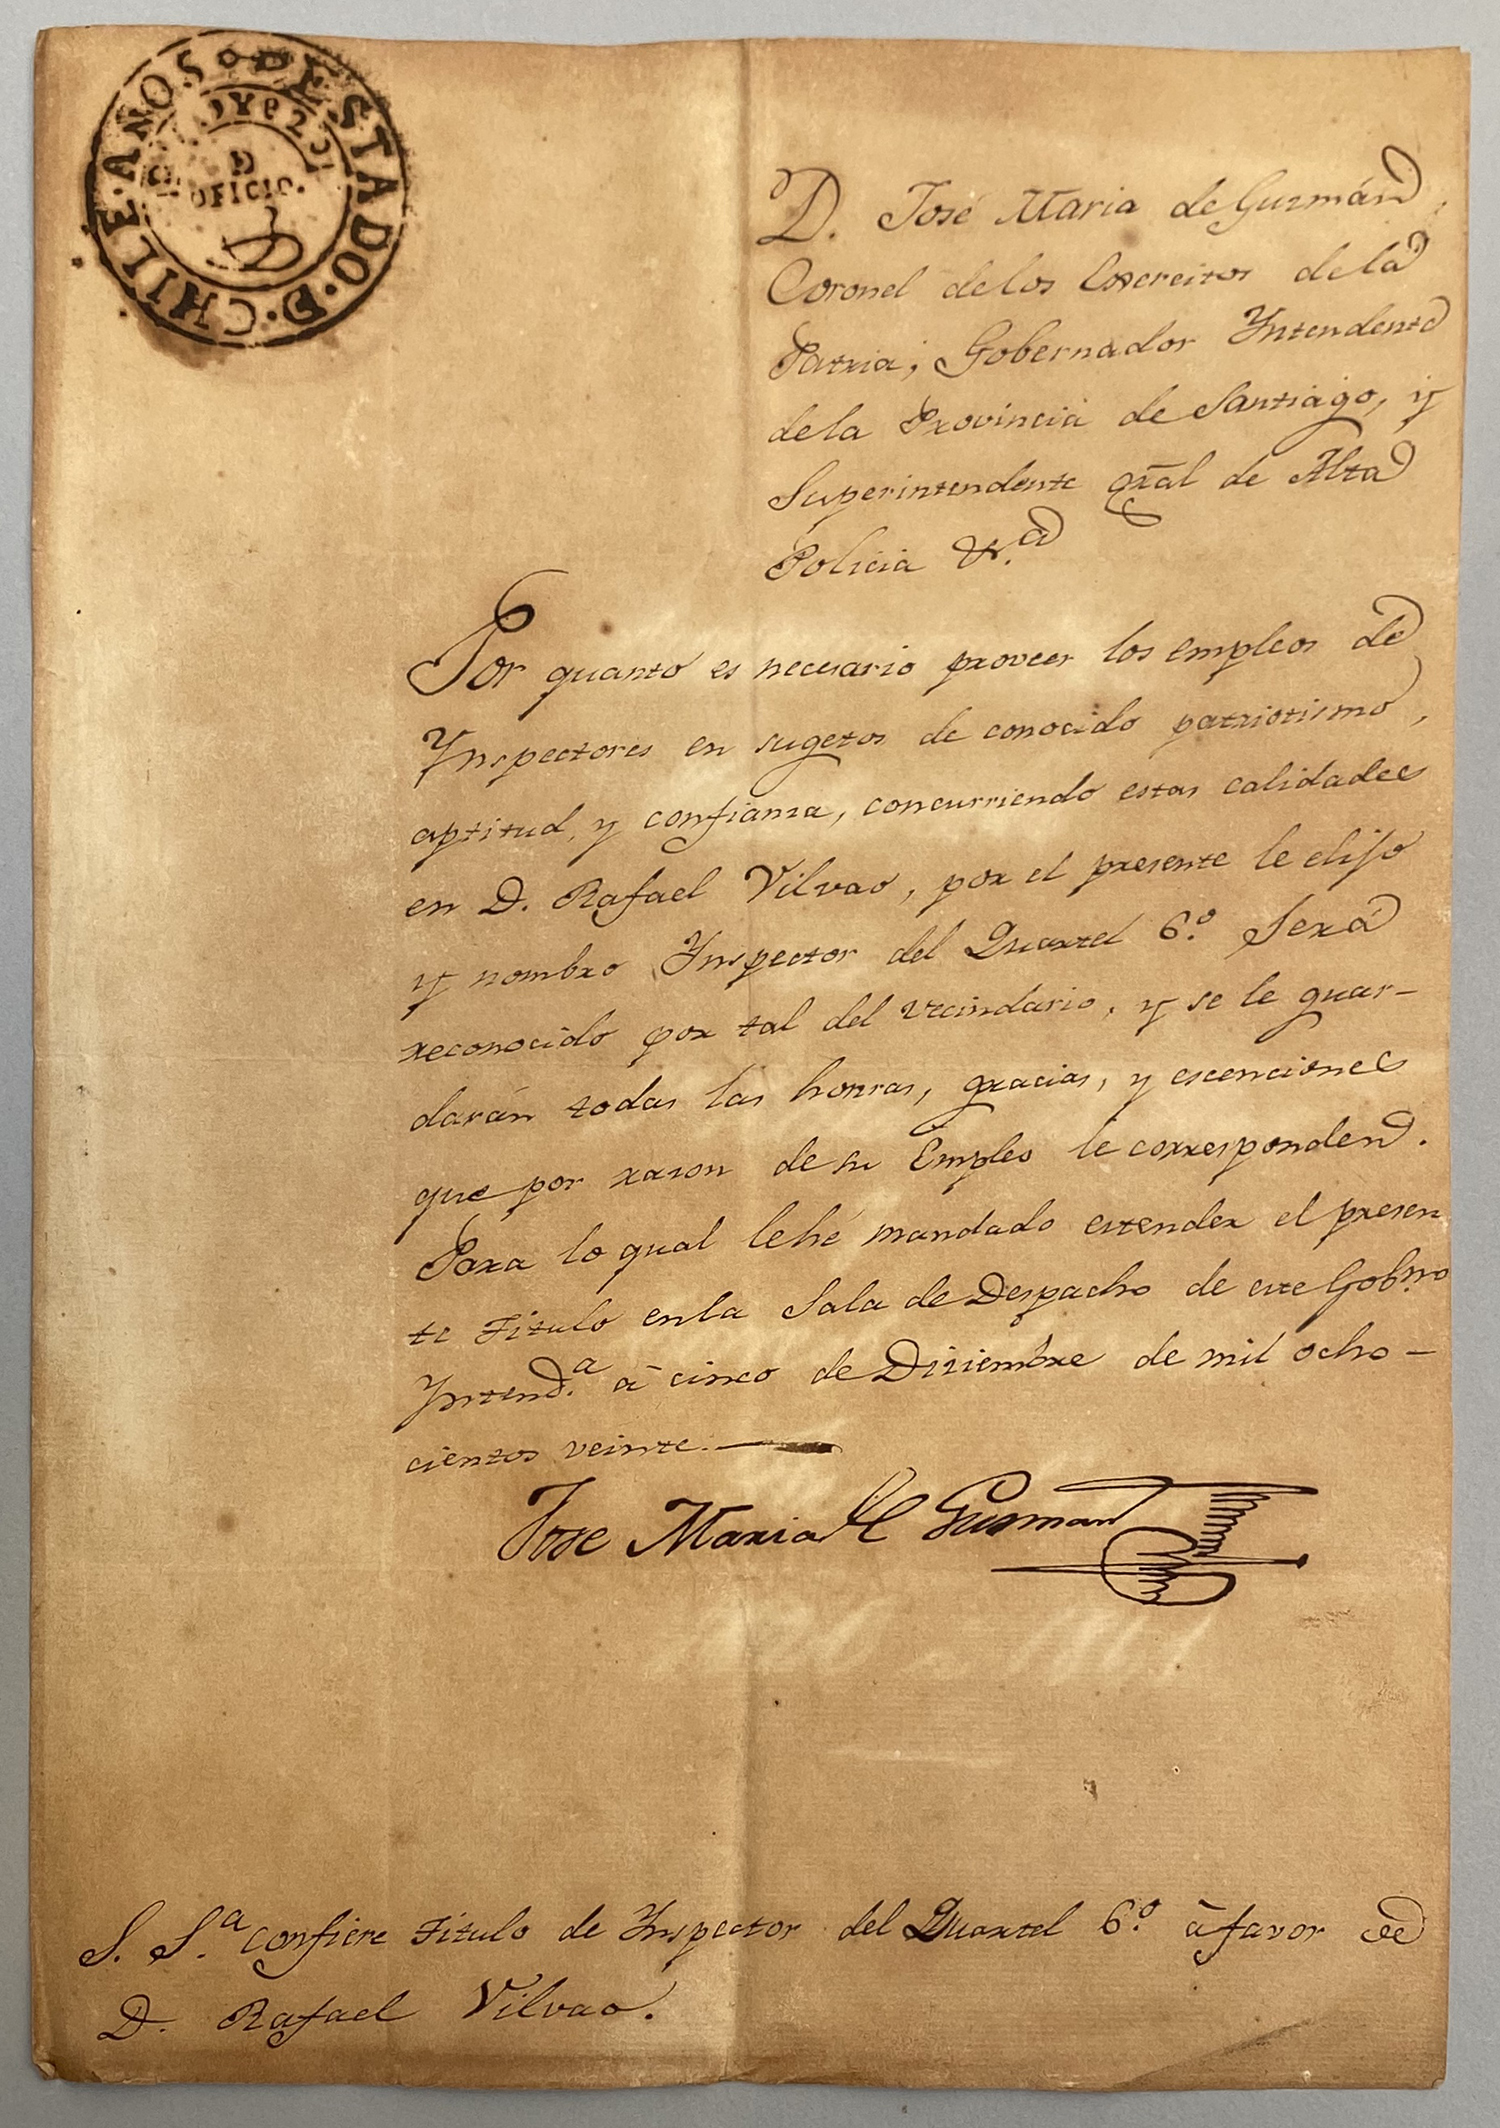 ESTADO · D · CHILE · AÑOS
D
OFICIO.
D. José Maria de Guzmán,
Coronel de los Exercitos de la
Patria, Gobernador Yntendente
de la Provincia de Santiago, y
Superintendente gral de Alta
Policia &.a
Por quanto es necesario proveer los empleos de
Ynspectores en sugetos de conocido patriotismo,
aptitud, y confianza, concurriendo estas calidades
en D. Rafael Vilvao, por el presente le elijo
y nombro Ynspector del Quartel 6.o Será
reconocido por tal del vecindario, y se le guar-
darán todas las honras, gracias, y escenciones
que por razon de su Empleo le corresponden.
Para lo qual le hé mandado estender el presen
te Titulo en la Sala de Despacho de este Gob.no
Yntend.a à cinco de Diziembre de mil ocho-
cientos veinte.
Jose Maria de Guzman
S. S.a confiere Titulo de Ynspector del Quartel 6.o à favor de
D. Rafael Vilvao.